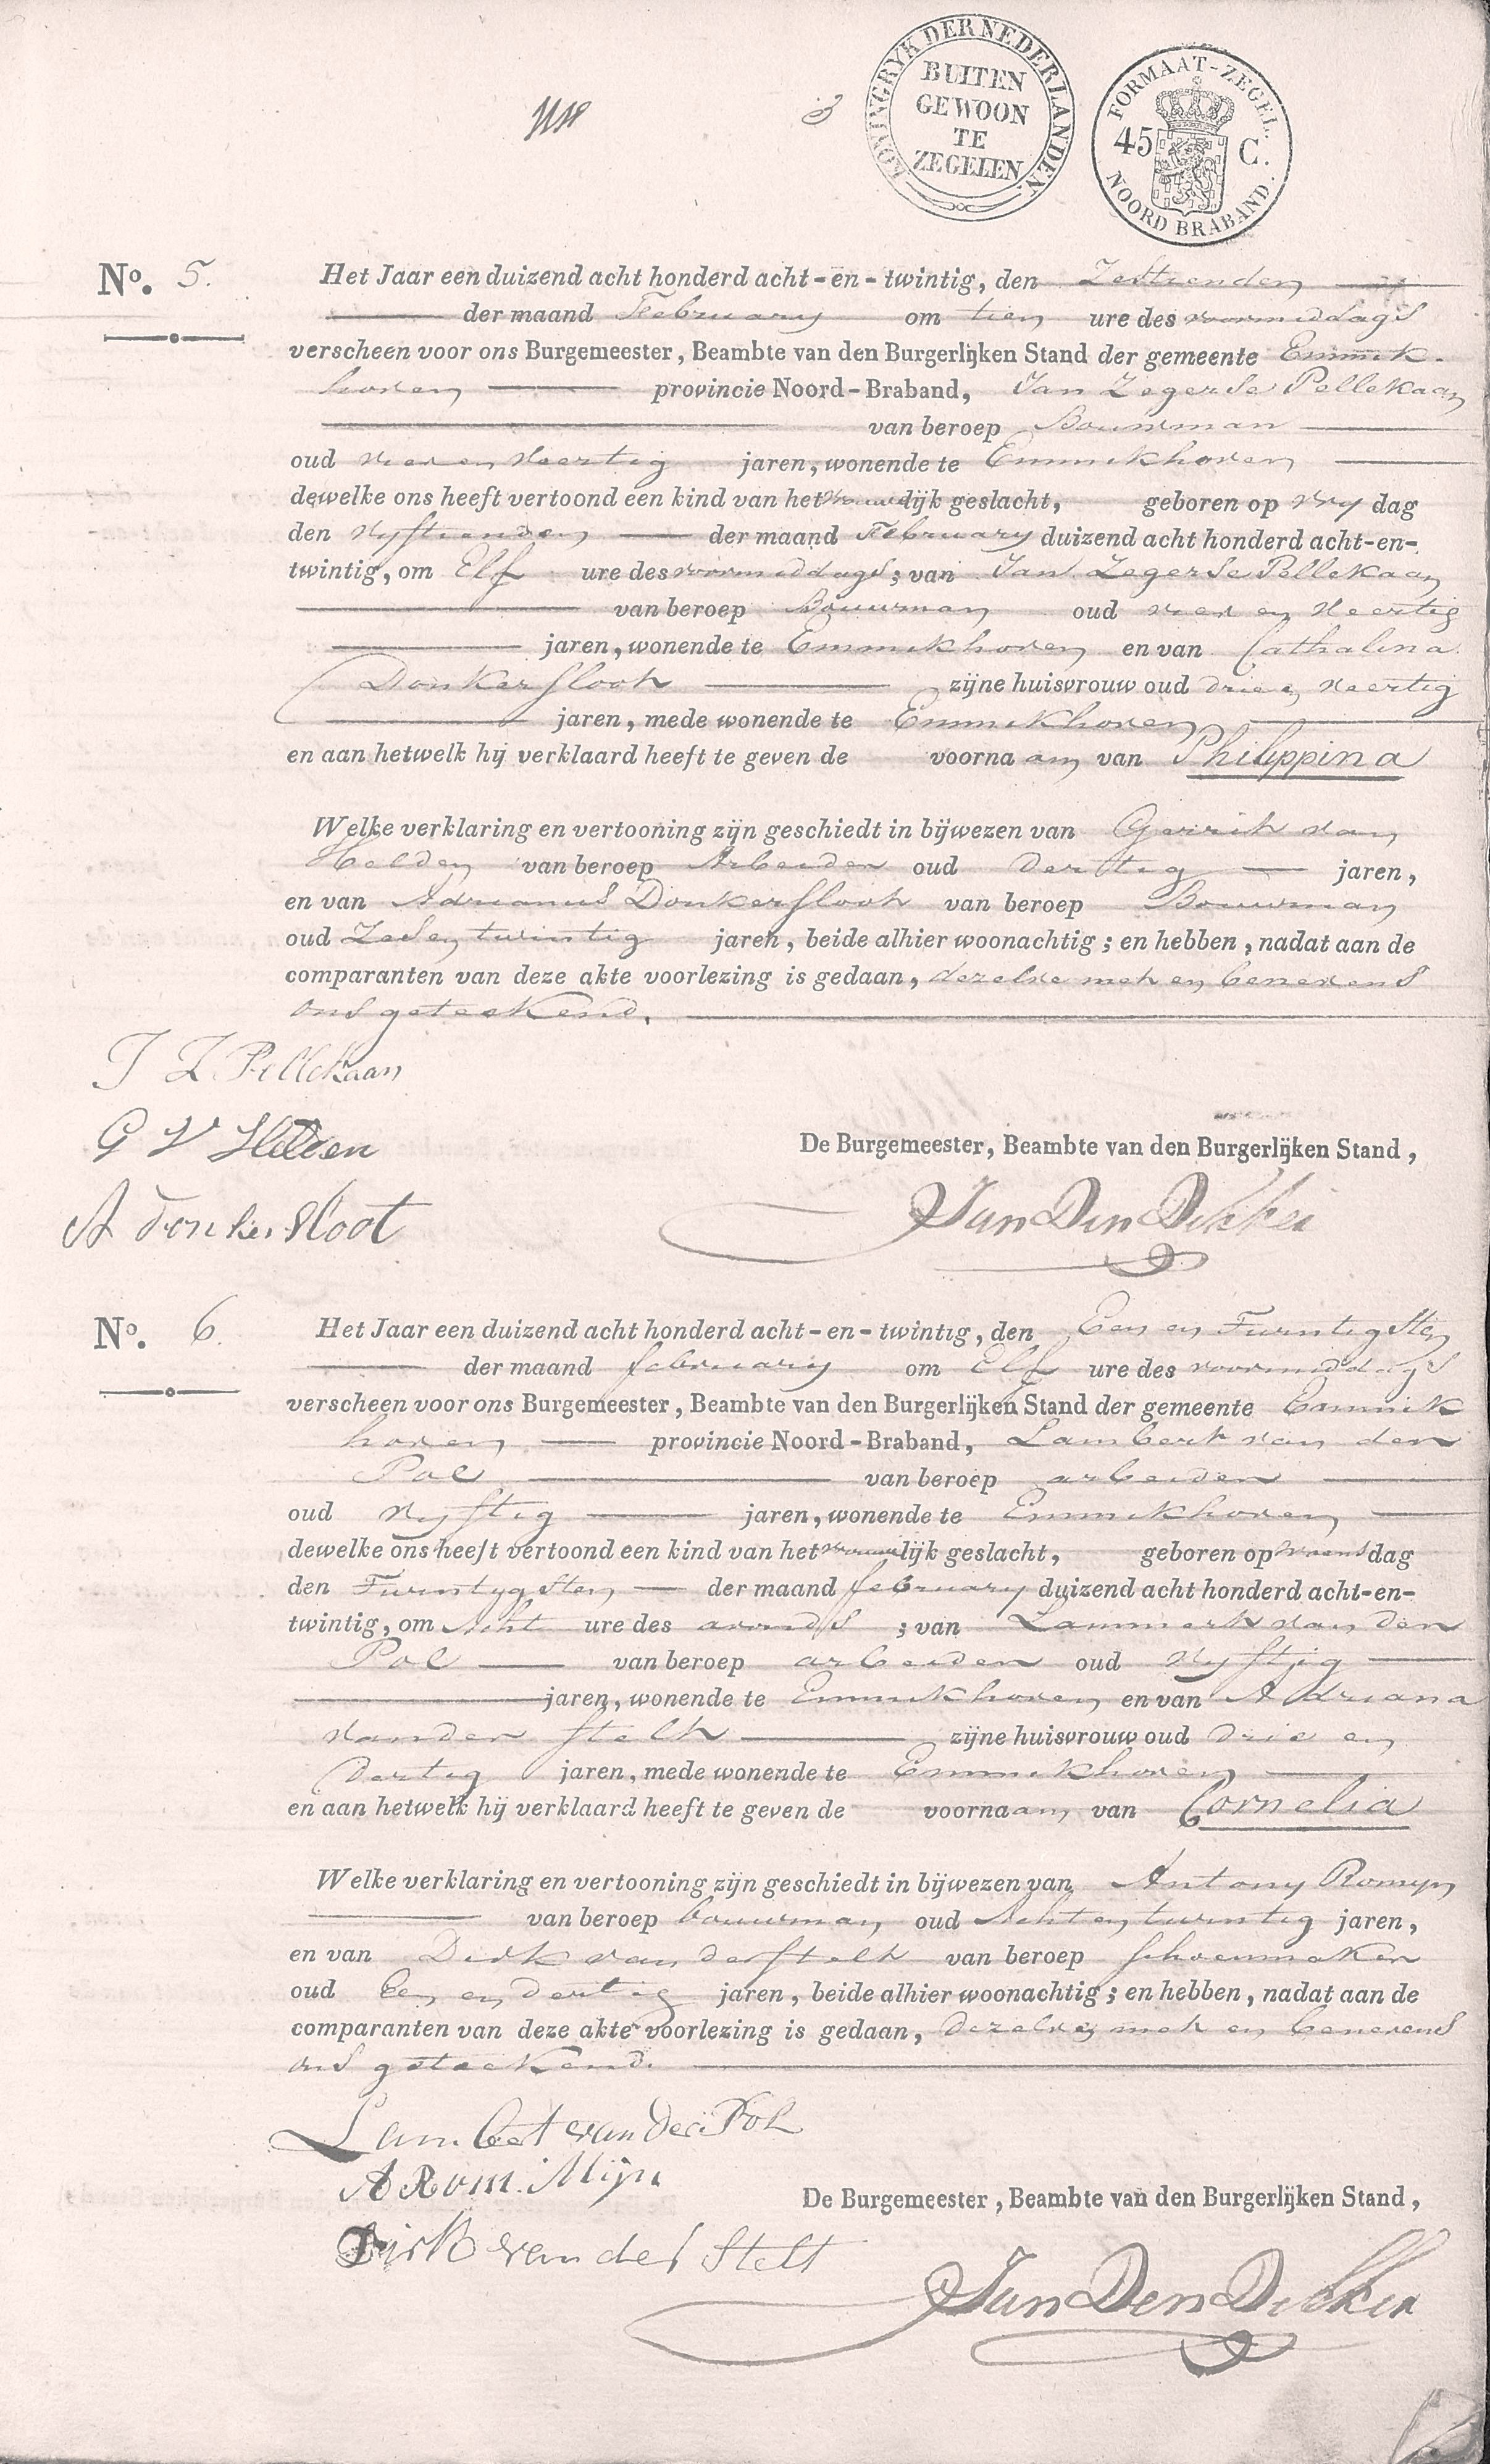 KONINGRYK DER NEDERLANDEN.
BUITEN
GEWOON
TE
ZEGELEN
FORMAAT-ZEGEL.
45 C.
NOORD BRABAND.
3
No. 5. Het Jaar een duizend acht honderd acht-en-twintig, den Zestienden
der maand February om tien ure des voormiddags
verscheen voor ons Burgemeester, Beambte van den Burgerlijken Stand der gemeente Emmik-
hoven provincie Noord-Braband, Jan Zegerse Pellekaan
van beroep Bouwman
oud vier en Veertig jaren, wonende te Emmikhoven
dewelke ons heeft vertoond een kind van het vrouwelijk geslacht, geboren op vrydag
den vyftienden der maand February duizend acht honderd acht-en-
twintig, om Elf ure des voormiddags; van Jan Zegerse Pellekaan
van beroep Bouwman oud vier en Veertig
jaren, wonende te Emmikhoven en van Cathalina
Donkersloot zijne huisvrouw oud drie en Veertig
jaren, mede wonende te Emmikhoven
en aan hetwelk hij verklaard heeft te geven de voornaam van Philippina
Welke verklaring en vertooning zijn geschiedt in bijwezen van Gerrit van
Helden van beroep Arbeider oud dertig jaren,
en van Adrianus Donkersloot van beroep Bouwman
oud Zes en twintig jaren, beide alhier woonachtig; en hebben, nadat aan de
comparanten van deze akte voorlezing is gedaan, dezelve met en benevens
ons geteekend.
J Z Pellekaan
G V Helden
De Burgemeester, Beambte van den Burgerlijken Stand,
A donkersloot
Jan Den Dekker
No. 6. Het Jaar een duizend acht honderd acht-en-twintig, den Een en Twintigsten
der maand february om Elf ure des voormiddags
verscheen voor ons Burgemeester, Beambte van den Burgerlijken Stand der gemeente Emmik
hoven provincie Noord-Braband, Lambert van den
Pol van beroep arbeider
oud vyftig jaren, wonende te Emmikhoven
dewelke ons heeft vertoond een kind van het vrouwelijk geslacht, geboren op woensdag
den Twintygsten der maand february duizend acht honderd acht-en-
twintig, om Acht ure des avonds; van Lammert van den
Pol van beroep arbeider oud vyftig
jaren, wonende te Emmikhoven en van Adriana
van der stelt zijne huisvrouw oud drie en
dertig jaren, mede wonende te Emmikhoven
en aan hetwelk hij verklaard heeft te geven de voornaam van Cornelia
Welke verklaring en vertooning zijn geschiedt in bijwezen van Antony Romyn
van beroep bouwman oud Acht en twintig jaren,
en van Dirk van der stelt van beroep schoenmaker
oud Een en dertig jaren, beide alhier woonachtig; en hebben, nadat aan de
comparanten van deze akte voorlezing is gedaan, dezelve met en benevens
ons geteekend.
Lambert van der Pol
A Rom Mijn
De Burgemeester, Beambte van den Burgerlijken Stand,
Dirk van der Stelt
Jan Den Dekker